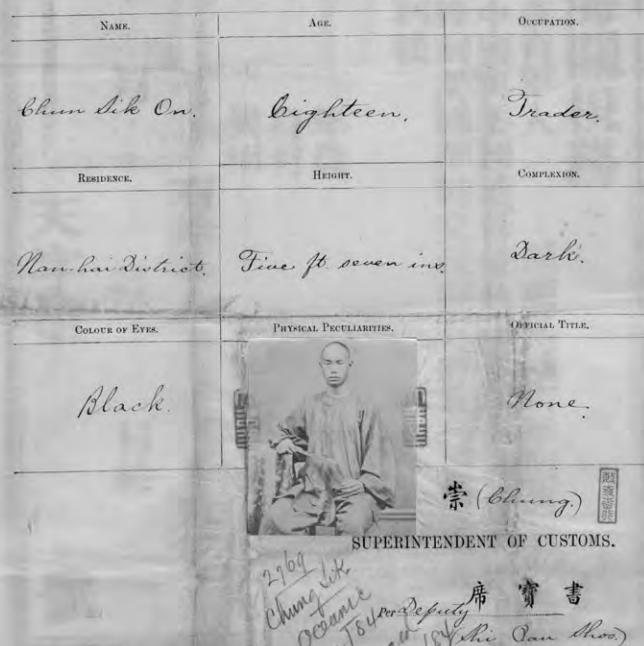 NAME. AGE. OCCUPATION.
Chun Sik On. Eighteen. Trader.
RESIDENCE. HEIGHT. COMPLEXION.
Nan-hai District. Five ft. seven ins. Dark.
COLOUR OF EYES. PHYSICAL PECULIARITIES. OFFICIAL TITLE.
Black. None.
崇 (Chung.)
SUPERINTENDENT OF CUSTOMS.
2969
Chung Sik
Oceanic
Per Deputy 席寶書